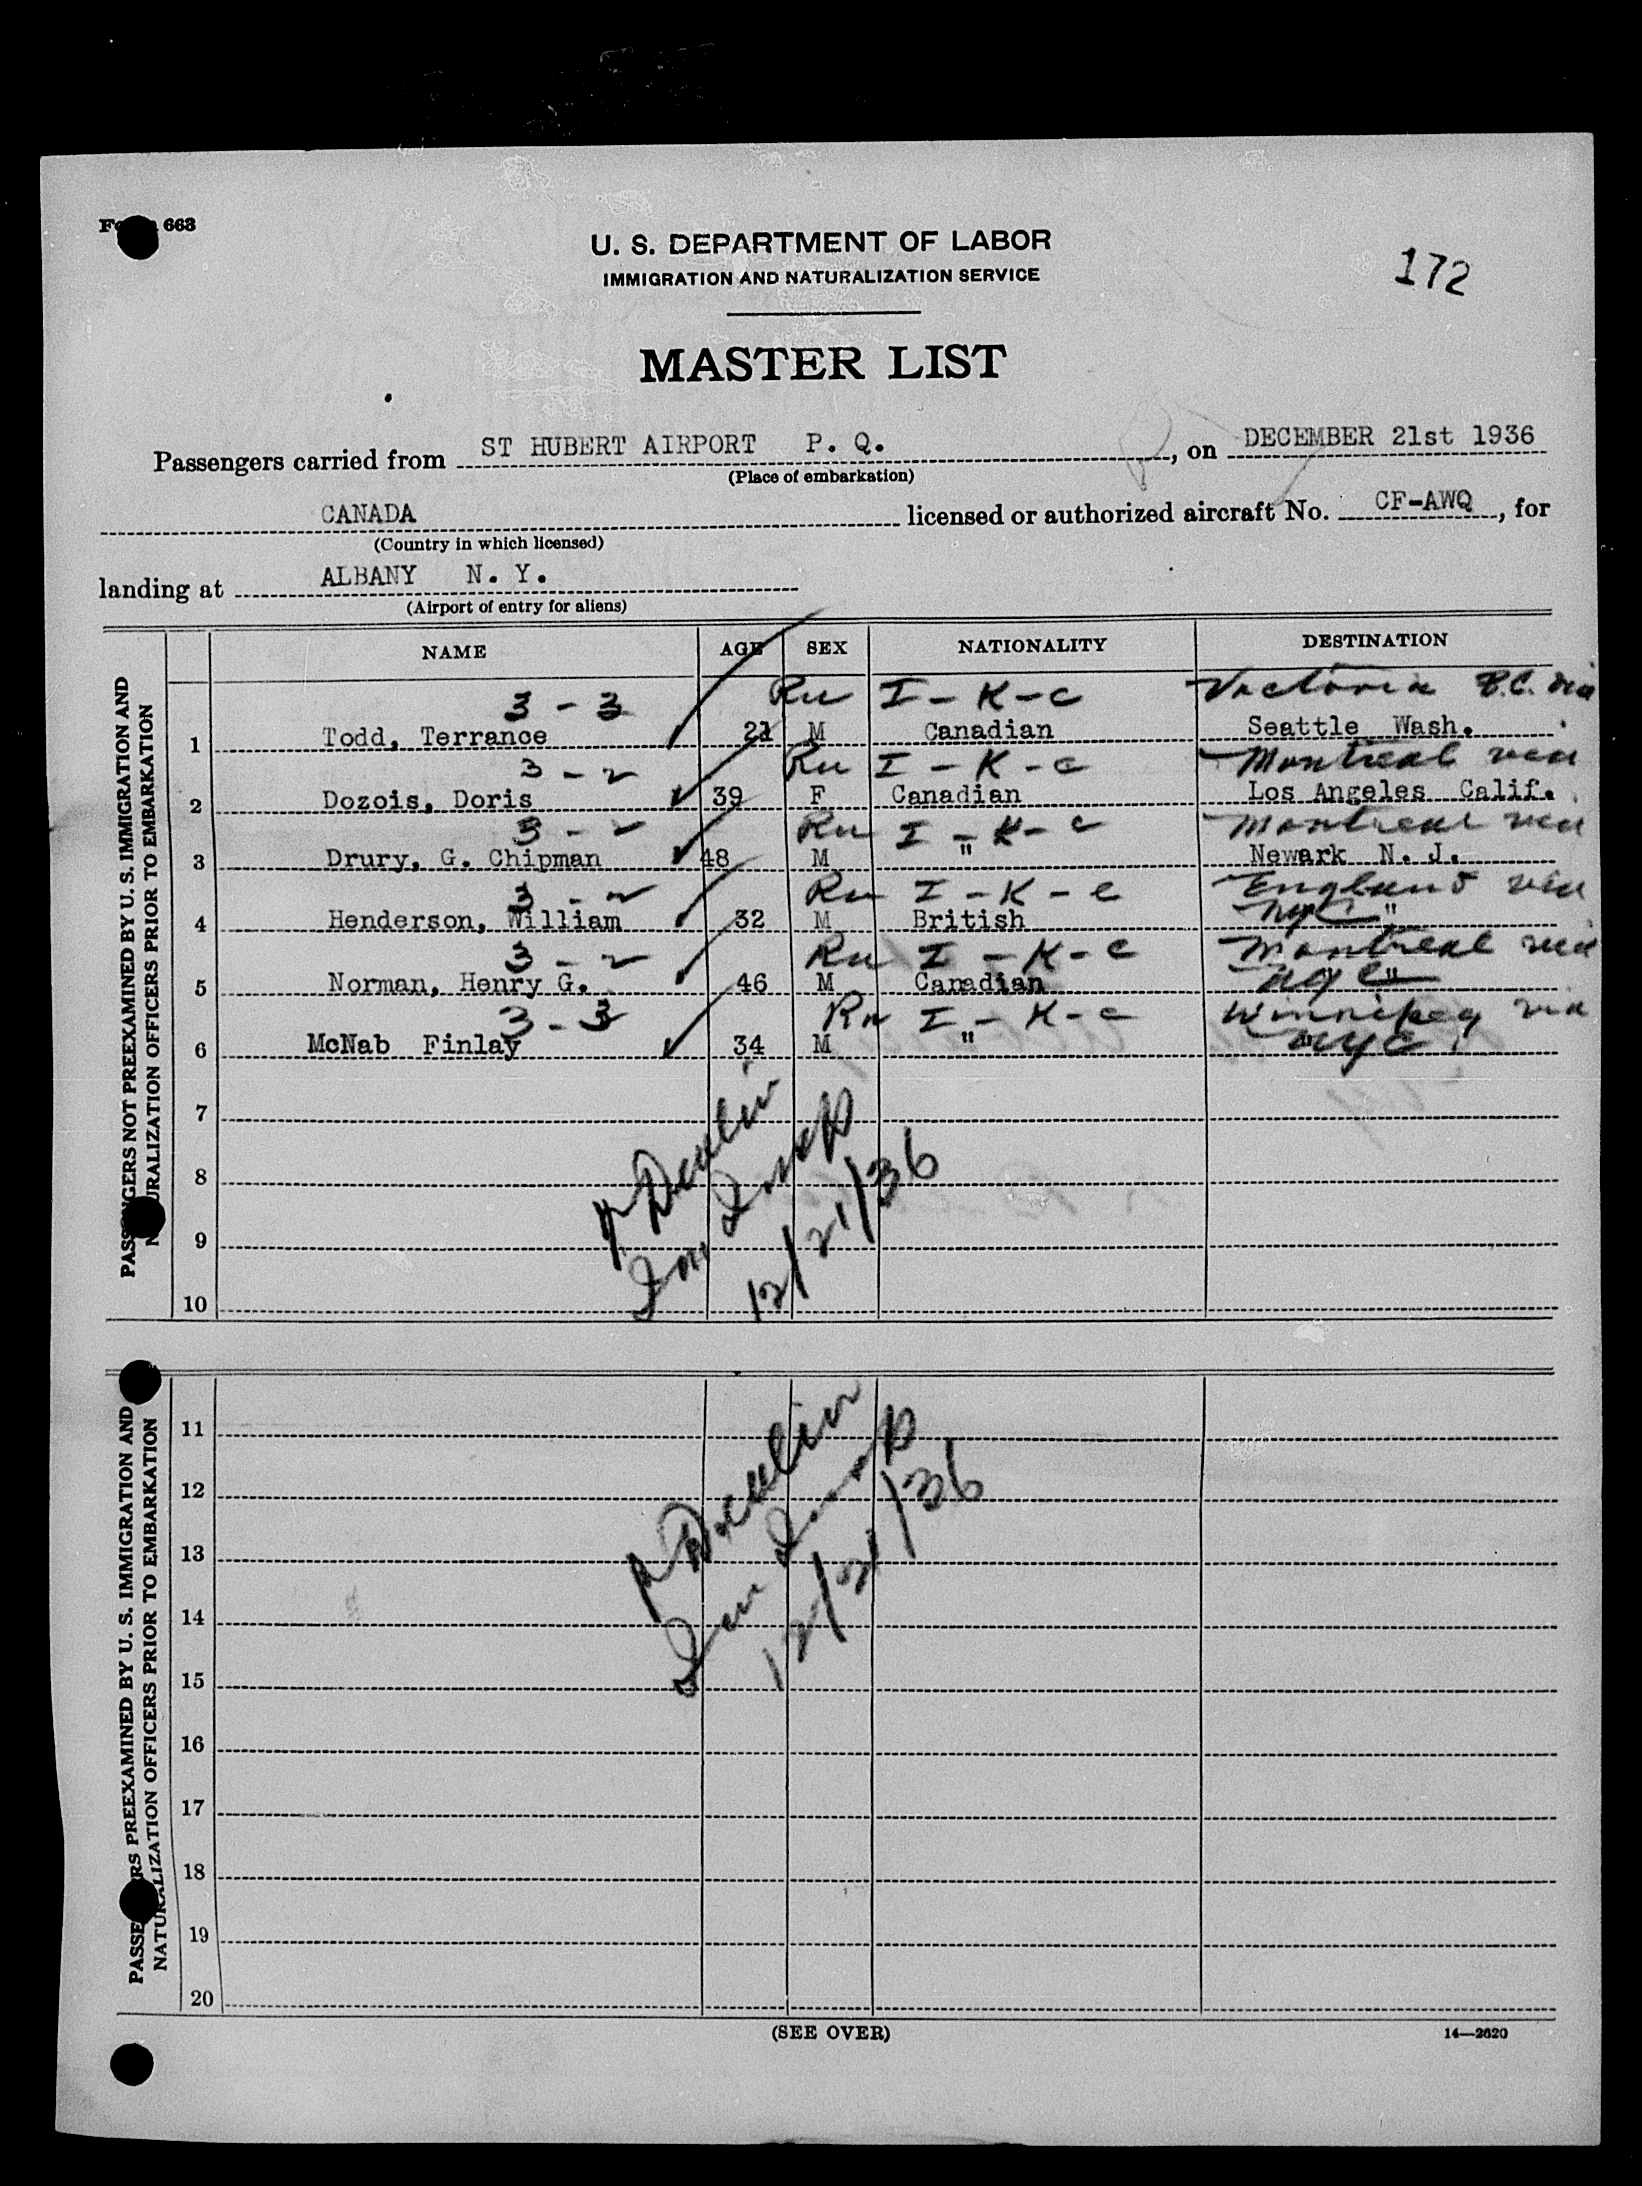 Form 663
U. S. DEPARTMENT OF LABOR
IMMIGRATION AND NATURALIZATION SERVICE
172
MASTER LIST
Passengers carried from ST HUBERT AIRPORT P. Q. , on DECEMBER 21st 1936
(Place of embarkation)
CANADA licensed or authorized aircraft No. CF-AWQ , for
(Country in which licensed)
landing at ALBANY N. Y.
(Airport of entry for aliens)
PASSENGERS NOT PREEXAMINED BY U. S. IMMIGRATION AND
NATURALIZATION OFFICERS PRIOR TO EMBARKATION
NAME AGE SEX NATIONALITY DESTINATION
3 - 3 I - K - C Victoria B.C. via
1 Todd, Terrance 21 M Canadian Seattle Wash.
3 - 2 I - K - C Montreal via
2 Dozois, Doris 39 F Canadian Los Angeles Calif.
3 - 2 I - K - C Montreal via
3 Drury, G. Chipman 48 M " Newark N. J.
3 - 2 I - K - C England via
4 Henderson, William 32 M British NYC "
3 - 2 I - K - C Montreal via
5 Norman, Henry G. 46 M Canadian NYC "
3 - 3 I - K - C Winnipeg via
6 McNab Finlay 34 M " " NYC
7
8
9
10
12/21/36
PASSENGERS PREEXAMINED BY U. S. IMMIGRATION AND
NATURALIZATION OFFICERS PRIOR TO EMBARKATION
11
12
13
14
15
16
17
18
19
20
12/21/36
(SEE OVER)
14—2620